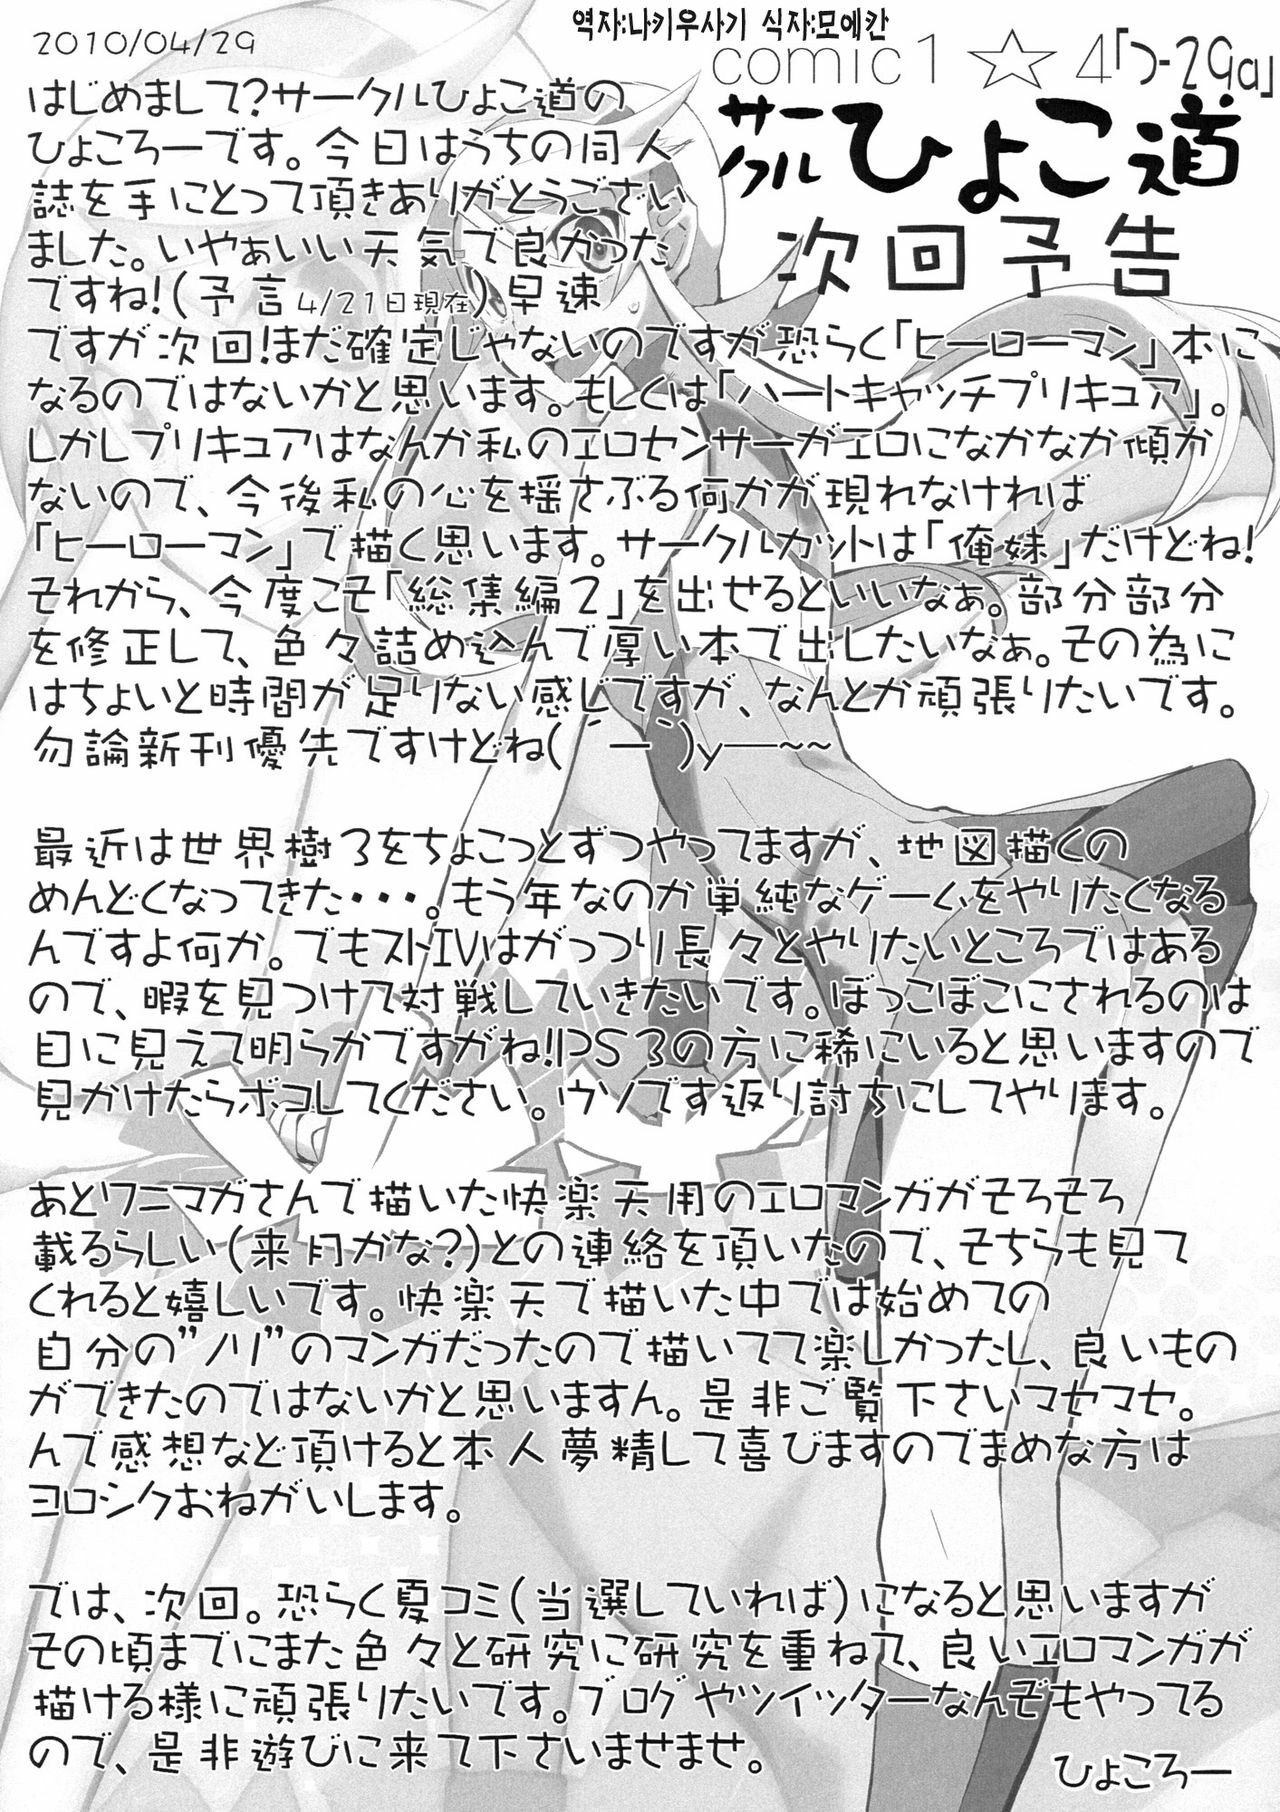 역자:나키우사기 식자:모에칸
2010/04/29
comic1☆4「つ-29a」
サークルひょこ道
次回予告
はじめまして?サークルひよこ道の
ひょころーです。今日はうちの同人
誌を手にとって頂きありがとうござい
ました。いやぁいい天気で良かった
ですね!(予言4/21日現在)早速
ですが次回!まだ確定じゃないのですが恐らく「ヒーローマン」本に
なるのではないかと思います。もしくは「ハートキャッチプリキュア」。
しかしプリキュアはなんか私のエロセンサーがエロになかなか傾か
ないので、今後私の心を揺さぶる何かが現れなければ
「ヒーローマン」で描く思います。サークルカットは「俺妹」だけどね!
それから、今度こそ「総集編2」を出せるといいなぁ。部分部分
を修正して、色々詰め込んで厚い本で出したいなぁ。その為に
はちょいと時間が足りない感じですが、なんとか頑張りたいです。
勿論新刊優先ですけどね(´ー`)y─~~
最近は世界樹3をちょこっとずつやってますが、地図描くの
めんどくなってきた・・・。もう年なのか単純なゲームをやりたくなる
んですよ何か。でもストIVはがっつり長々とやりたいところではある
ので、暇を見つけて対戦していきたいです。ぼっこぼこにされるのは
目に見えて明らかですがね!PS3の方に稀にいると思いますので
見かけたらボコしてください。ウソです返り討ちにしてやります。
あとワニマガさんで描いた快楽天用のエロマンガがそろそろ
載るらしい(来月かな?)との連絡を頂いたので、そちらも見て
くれると嬉しいです。快楽天で描いた中では始めての
自分の”ノリ”のマンガだったので描いてて楽しかったし、良いもの
ができたのではないかと思いますん。是非ご覧下さいマセマセ。
んで感想など頂けると本人夢精して喜びますのでまめな方は
ヨロシクおねがいします。
では、次回。恐らく夏コミ(当選していれば)になると思いますが
その頃までにまた色々と研究に研究を重ねて、良いエロマンガが
描ける様に頑張りたいです。ブログやツイッターなんぞもやってる
ので、是非遊びに来て下さいませませ。
ひょころー